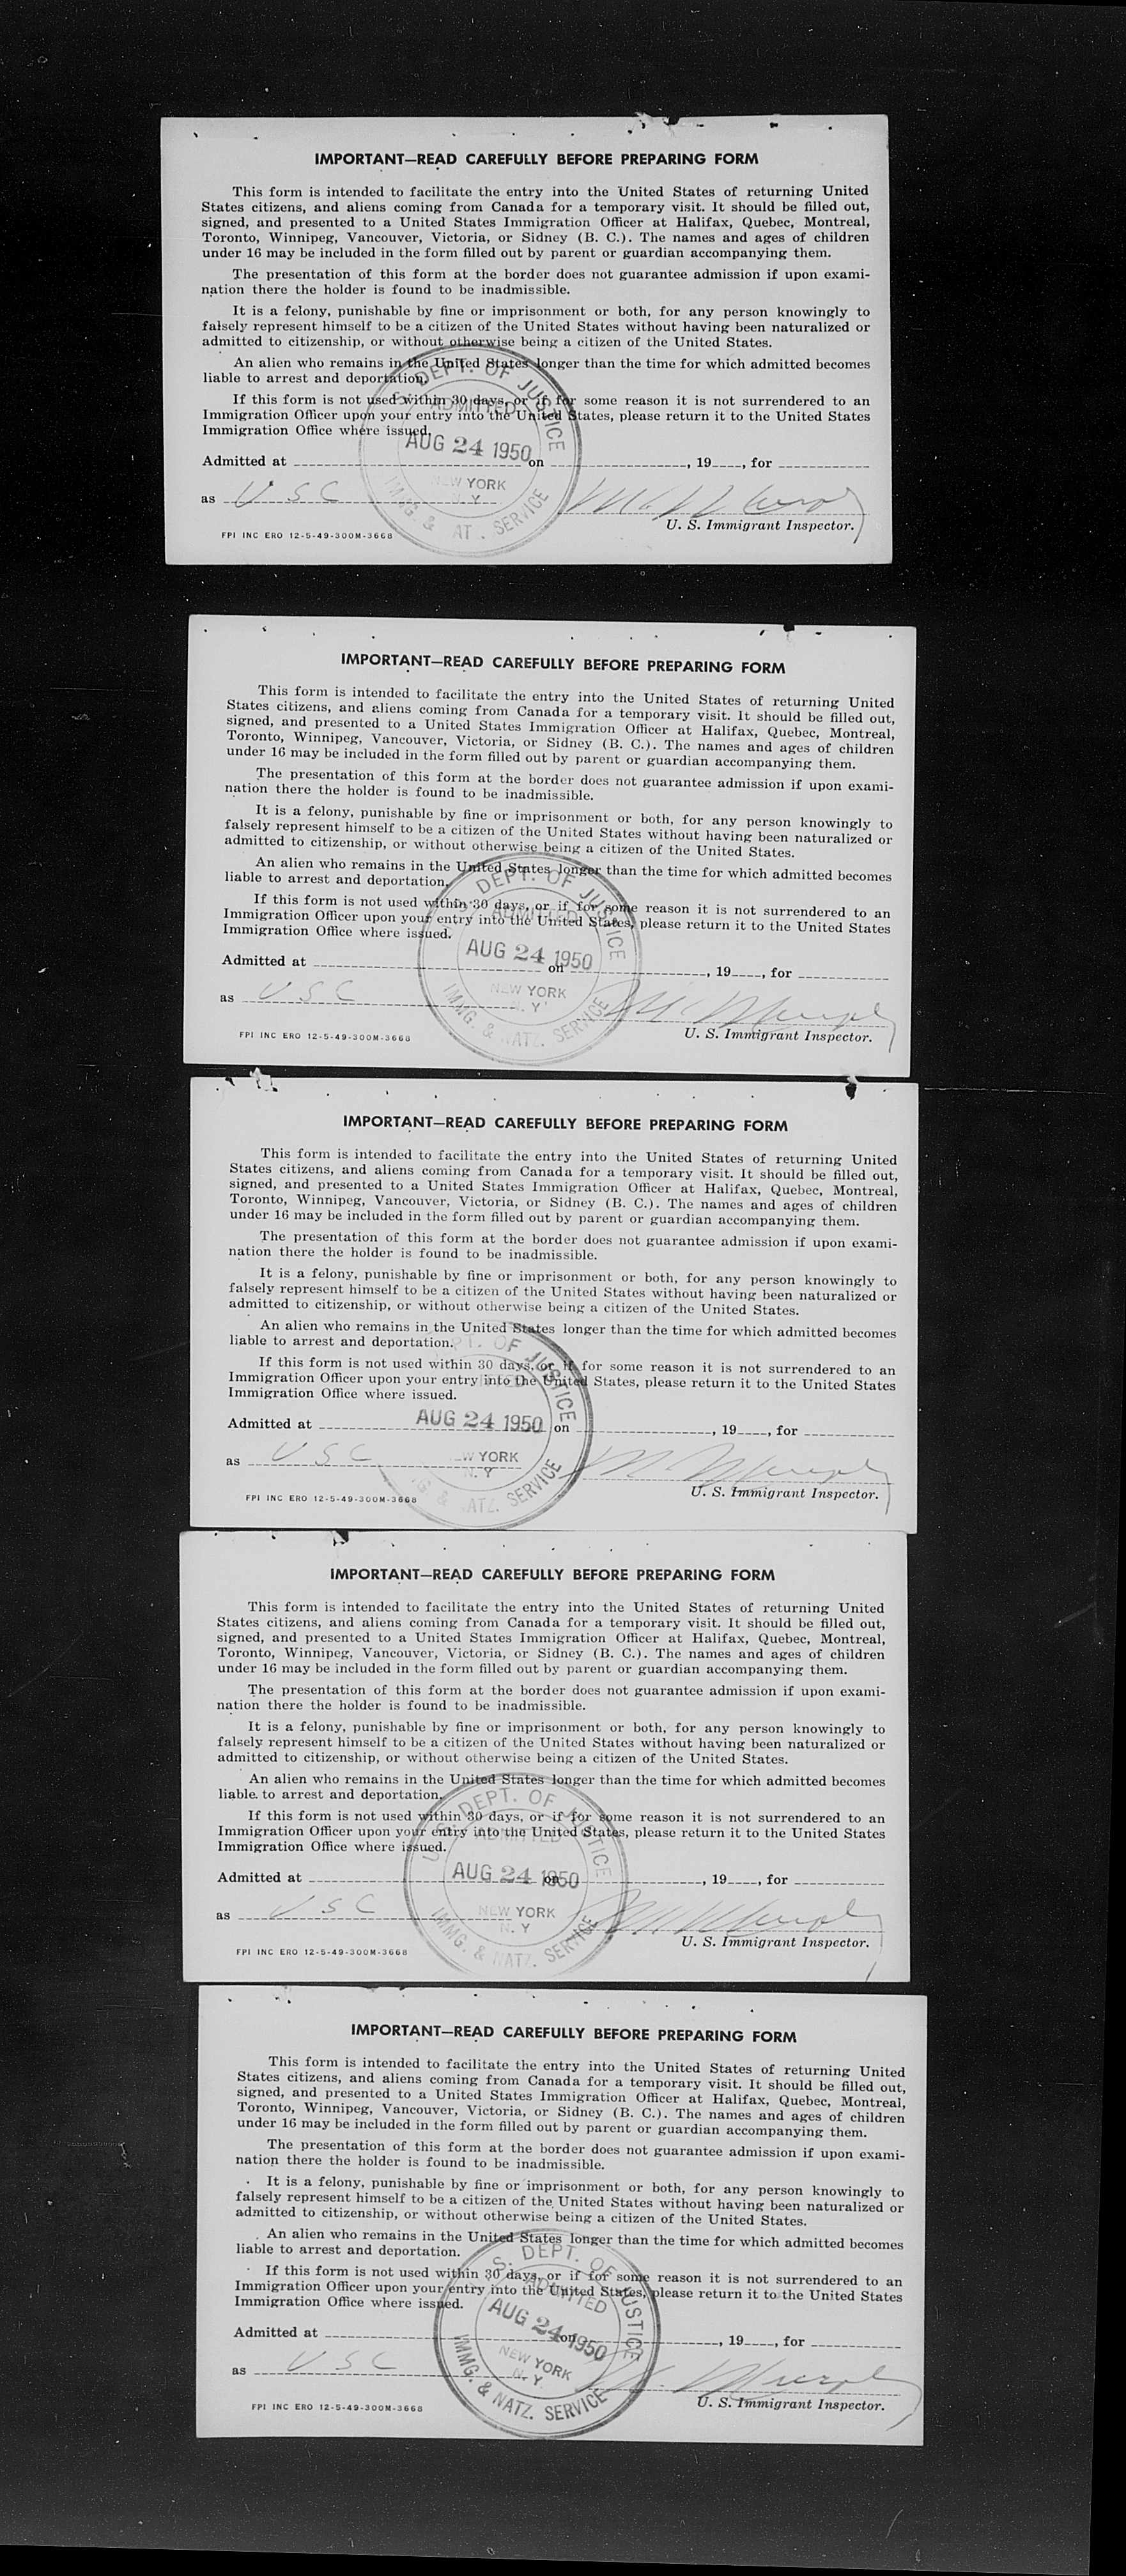 IMPORTANT—READ CAREFULLY BEFORE PREPARING FORM
This form is intended to facilitate the entry into the United States of returning United
States citizens, and aliens coming from Canada for a temporary visit. It should be filled out,
signed, and presented to a United States Immigration Officer at Halifax, Quebec, Montreal,
Toronto, Winnipeg, Vancouver, Victoria, or Sidney (B. C.). The names and ages of children
under 16 may be included in the form filled out by parent or guardian accompanying them.
The presentation of this form at the border does not guarantee admission if upon exami-
nation there the holder is found to be inadmissible.
It is a felony, punishable by fine or imprisonment or both, for any person knowingly to
falsely represent himself to be a citizen of the United States without having been naturalized or
admitted to citizenship, or without otherwise being a citizen of the United States.
An alien who remains in the United States longer than the time for which admitted becomes
liable to arrest and deportation.
If this form is not used within 30 days, or if for some reason it is not surrendered to an
Immigration Officer upon your entry into the United States, please return it to the United States
Immigration Office where issued.
S. DEPT. OF JUSTICE
ADMITTED
AUG 24 1950
YORK
Y
IMMG. & AT . SERVICE
Admitted at on , 19 , for
as U S C
U. S. Immigrant Inspector.
FPI INC ERO 12-5-49-300M-3668
IMPORTANT—READ CAREFULLY BEFORE PREPARING FORM
This form is intended to facilitate the entry into the United States of returning United
States citizens, and aliens coming from Canada for a temporary visit. It should be filled out,
signed, and presented to a United States Immigration Officer at Halifax, Quebec, Montreal,
Toronto, Winnipeg, Vancouver, Victoria, or Sidney (B. C.). The names and ages of children
under 16 may be included in the form filled out by parent or guardian accompanying them.
The presentation of this form at the border does not guarantee admission if upon exami-
nation there the holder is found to be inadmissible.
It is a felony, punishable by fine or imprisonment or both, for any person knowingly to
falsely represent himself to be a citizen of the United States without having been naturalized or
admitted to citizenship, or without otherwise being a citizen of the United States.
An alien who remains in the United States longer than the time for which admitted becomes
liable to arrest and deportation.
If this form is not used within 30 days, or if for some reason it is not surrendered to an
Immigration Officer upon your entry into the United States, please return it to the United States
Immigration Office where issued.
DEPT. OF JUSTICE
ADMITTED
AUG 24 1950
NEW YORK
. Y
IMMG. & NATZ. SERVICE
Admitted at on , 19 , for
as U S C
U. S. Immigrant Inspector.
FPI INC ERO 12-5-49-300M-3668
IMPORTANT—READ CAREFULLY BEFORE PREPARING FORM
This form is intended to facilitate the entry into the United States of returning United
States citizens, and aliens coming from Canada for a temporary visit. It should be filled out,
signed, and presented to a United States Immigration Officer at Halifax, Quebec, Montreal,
Toronto, Winnipeg, Vancouver, Victoria, or Sidney (B. C.). The names and ages of children
under 16 may be included in the form filled out by parent or guardian accompanying them.
The presentation of this form at the border does not guarantee admission if upon exami-
nation there the holder is found to be inadmissible.
It is a felony, punishable by fine or imprisonment or both, for any person knowingly to
falsely represent himself to be a citizen of the United States without having been naturalized or
admitted to citizenship, or without otherwise being a citizen of the United States.
An alien who remains in the United States longer than the time for which admitted becomes
liable to arrest and deportation.
If this form is not used within 30 days, or if for some reason it is not surrendered to an
Immigration Officer upon your entry into the United States, please return it to the United States
Immigration Office where issued.
PT. OF JUSTICE
AUG 24 1950
W YORK
N. Y
G. & ATZ. SERVICE
Admitted at on , 19 , for
as U S C
U. S. Immigrant Inspector.
FPI INC ERO 12-5-49-300M-3668
IMPORTANT—READ CAREFULLY BEFORE PREPARING FORM
This form is intended to facilitate the entry into the United States of returning United
States citizens, and aliens coming from Canada for a temporary visit. It should be filled out,
signed, and presented to a United States Immigration Officer at Halifax, Quebec, Montreal,
Toronto, Winnipeg, Vancouver, Victoria, or Sidney (B. C.). The names and ages of children
under 16 may be included in the form filled out by parent or guardian accompanying them.
The presentation of this form at the border does not guarantee admission if upon exami-
nation there the holder is found to be inadmissible.
It is a felony, punishable by fine or imprisonment or both, for any person knowingly to
falsely represent himself to be a citizen of the United States without having been naturalized or
admitted to citizenship, or without otherwise being a citizen of the United States.
An alien who remains in the United States longer than the time for which admitted becomes
liable to arrest and deportation.
If this form is not used within 30 days, or if for some reason it is not surrendered to an
Immigration Officer upon your entry into the United States, please return it to the United States
Immigration Office where issued.
U. S. DEPT. OF JUSTICE
ADMITTED
AUG 24 1950
NEW YORK
N. Y
IMMG. & NATZ. SERVICE
Admitted at on , 19 , for
as U S C
U. S. Immigrant Inspector.
FPI INC ERO 12-5-49-300M-3668
IMPORTANT—READ CAREFULLY BEFORE PREPARING FORM
This form is intended to facilitate the entry into the United States of returning United
States citizens, and aliens coming from Canada for a temporary visit. It should be filled out,
signed, and presented to a United States Immigration Officer at Halifax, Quebec, Montreal,
Toronto, Winnipeg, Vancouver, Victoria, or Sidney (B. C.). The names and ages of children
under 16 may be included in the form filled out by parent or guardian accompanying them.
The presentation of this form at the border does not guarantee admission if upon exami-
nation there the holder is found to be inadmissible.
It is a felony, punishable by fine or imprisonment or both, for any person knowingly to
falsely represent himself to be a citizen of the United States without having been naturalized or
admitted to citizenship, or without otherwise being a citizen of the United States.
An alien who remains in the United States longer than the time for which admitted becomes
liable to arrest and deportation.
If this form is not used within 30 days, or if for some reason it is not surrendered to an
Immigration Officer upon your entry into the United States, please return it to the United States
Immigration Office where issued.
S. DEPT. OF JUSTICE
ADMITTED
AUG 24 1950
NEW YORK
N. Y
IMMG. & NATZ. SERVICE
Admitted at on , 19 , for
as U S C
U. S. Immigrant Inspector.
FPI INC ERO 12-5-49-300M-3668